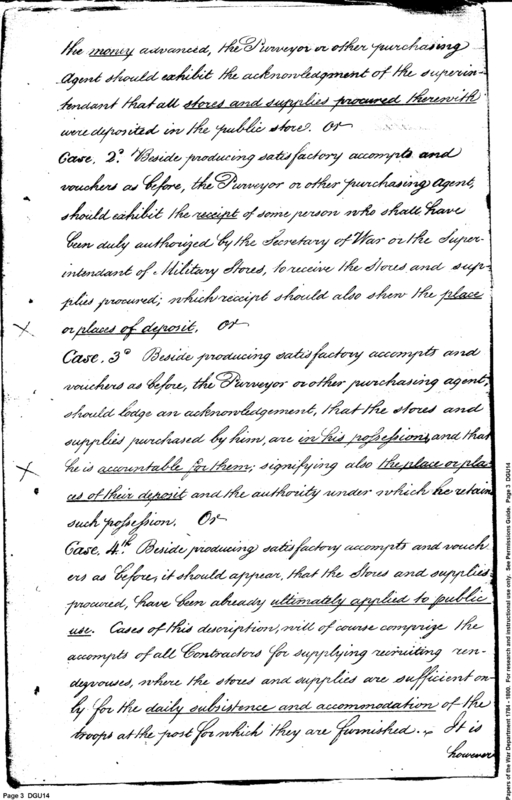 the money advanced, the Purveyor or other purchasing
Agent should exhibit the acknowledgment of the superin-
tendant that all stores and supplies procured therewith
were deposited in the public store. Or
Case. 2d. Beside producing satisfactory accompts and
vouchers as before, the Purveyor or other purchasing Agent,
should exhibit the receipt of some person who shall have
been duly authorized by the Secretary of War or the Super-
intendant of Military Stores, to receive the Stores and sup-
plies procured; which receipt should also shew the place
or places of deposit. Or
Case. 3d Beside producing satisfactory accompts and
vouchers as before, the Purveyor or other purchasing agent,
should lodge an acknowledgement, that the stores and
supplies purchased by him, are in his possession, and that
he is accountable for them; signifying also the place or pla-
ces of their deposit and the authority under which he retain
such possession. Or
Case. 4th. Beside producing satisfactory accompts and vouch
ers as before, it should appear, that the Stores and supplies
procured, have been already ultimately applied to public
use. Cases of this description, will of course comprize the
accompts of all Contractors for supplying recruiting ren-
dezvouses, where the stores and supplies are sufficient on-
ly for the daily subsistence and accommodation of the
troops at the post for which they are furnished. It is
however
Page 3 DGU14
Papers of the War Department 1784 - 1800. For research and instructional use only. See Permissions Guide. Page 3 DGU14